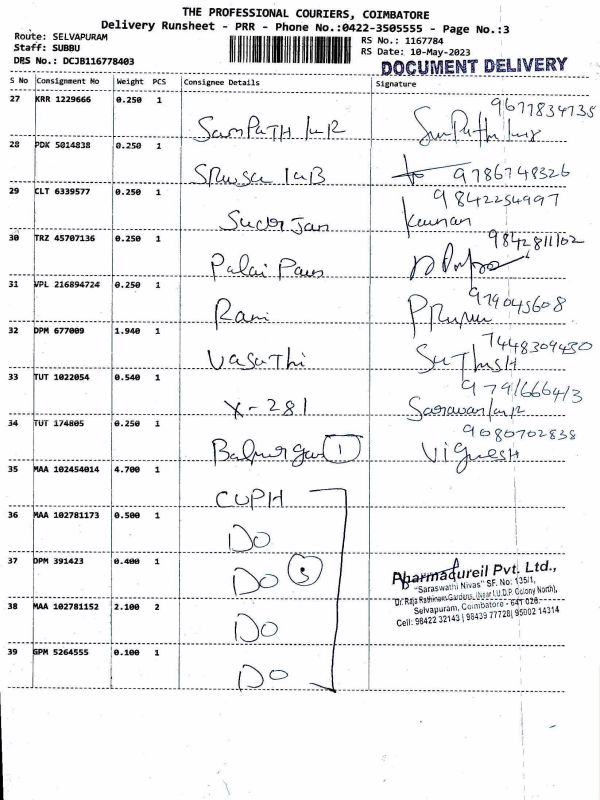 THE PROFESSIONAL COURIERS, COIMBATORE
Delivery Runsheet - PRR - Phone No.:0422-3505555 - Page No.:3
Route: SELVAPURAM
RS No.: 1167784
Staff: SUBBU
RS Date: 10-May-2023
DRS No.: DCJB116778403
DOCUMENT DELIVERY
S No Consignment No Weight PCS Consignee Details Signature
27 KRR 1229666 0.250 1
9677834735
SamPaTH
28 PDK 5014838 0.250 1
9786748326
29 CLT 6339577 0.250 1
9842254997
Kannan
30 TRZ 45707136 0.250 1
9842811102
Palai
31 VPL 216894724 0.250 1
979045608
Rani
32 DPM 677009 1.940 1
7448309430
Vasathi SuThisH
33 TUT 1022054 0.540 1
9791666413
X-281
34 TUT 174805 0.250 1
9080702838
1 VignesH
35 MAA 102454014 4.700 1
CUPH
36 MAA 102781173 0.500 1
DO
37 DPM 391423 0.400 1
DO 5
Pharmadureil Pvt. Ltd.,
"Saraswathi Nivas" SF. No: 135/1,
Dr. Raja Rathinam Gardens, (Near I.U.D.P. Colony North),
Selvapuram, Coimbatore - 641 026.
Cell: 98422 32143 | 98439 77728 | 95002 14314
38 MAA 102781152 2.100 2
DO
39 GPM 5264555 0.100 1
DO